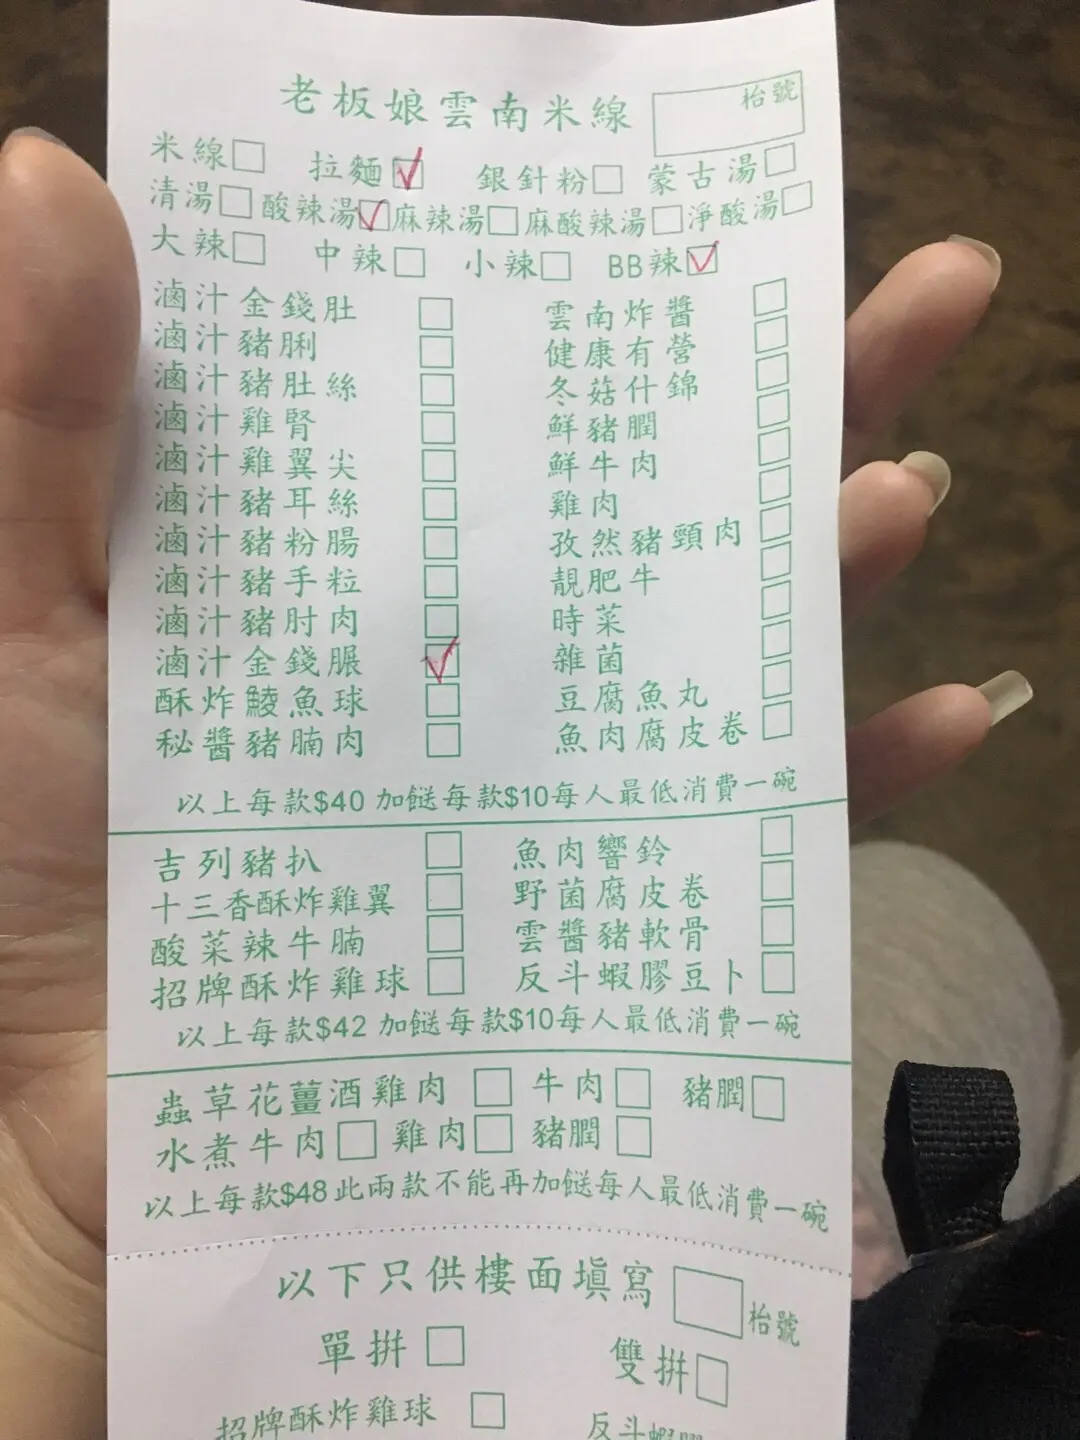 老板娘雲南米線 枱號
米線 拉麵 銀針粉 蒙古湯
清湯 酸辣湯 麻辣湯 麻酸辣湯 淨酸湯
大辣 中辣 小辣 BB辣
滷汁金錢肚 雲南炸醬
滷汁豬脷 健康有營
滷汁豬肚絲 冬菇什錦
滷汁雞腎 鮮豬膶
滷汁雞翼尖 鮮牛肉
滷汁豬耳絲 雞肉
滷汁豬粉腸 孜然豬頸肉
滷汁豬手粒 靚肥牛
滷汁豬肘肉 時菜
滷汁金錢𦟌 雜菌
酥炸鯪魚球 豆腐魚丸
秘醬豬腩肉 魚肉腐皮卷
以上每款$40 加餸每款$10每人最低消費一碗
吉列豬扒 魚肉響鈴
十三香酥炸雞翼 野菌腐皮卷
酸菜辣牛腩 雲醬豬軟骨
招牌酥炸雞球 反斗蝦膠豆卜
以上每款$42 加餸每款$10每人最低消費一碗
蟲草花薑酒雞肉 牛肉 豬膶
水煮牛肉 雞肉 豬膶
以上每款$48此兩款不能再加餸每人最低消費一碗
以下只供樓面填寫 枱號
單拼 雙拼
招牌酥炸雞球 反斗蝦膠